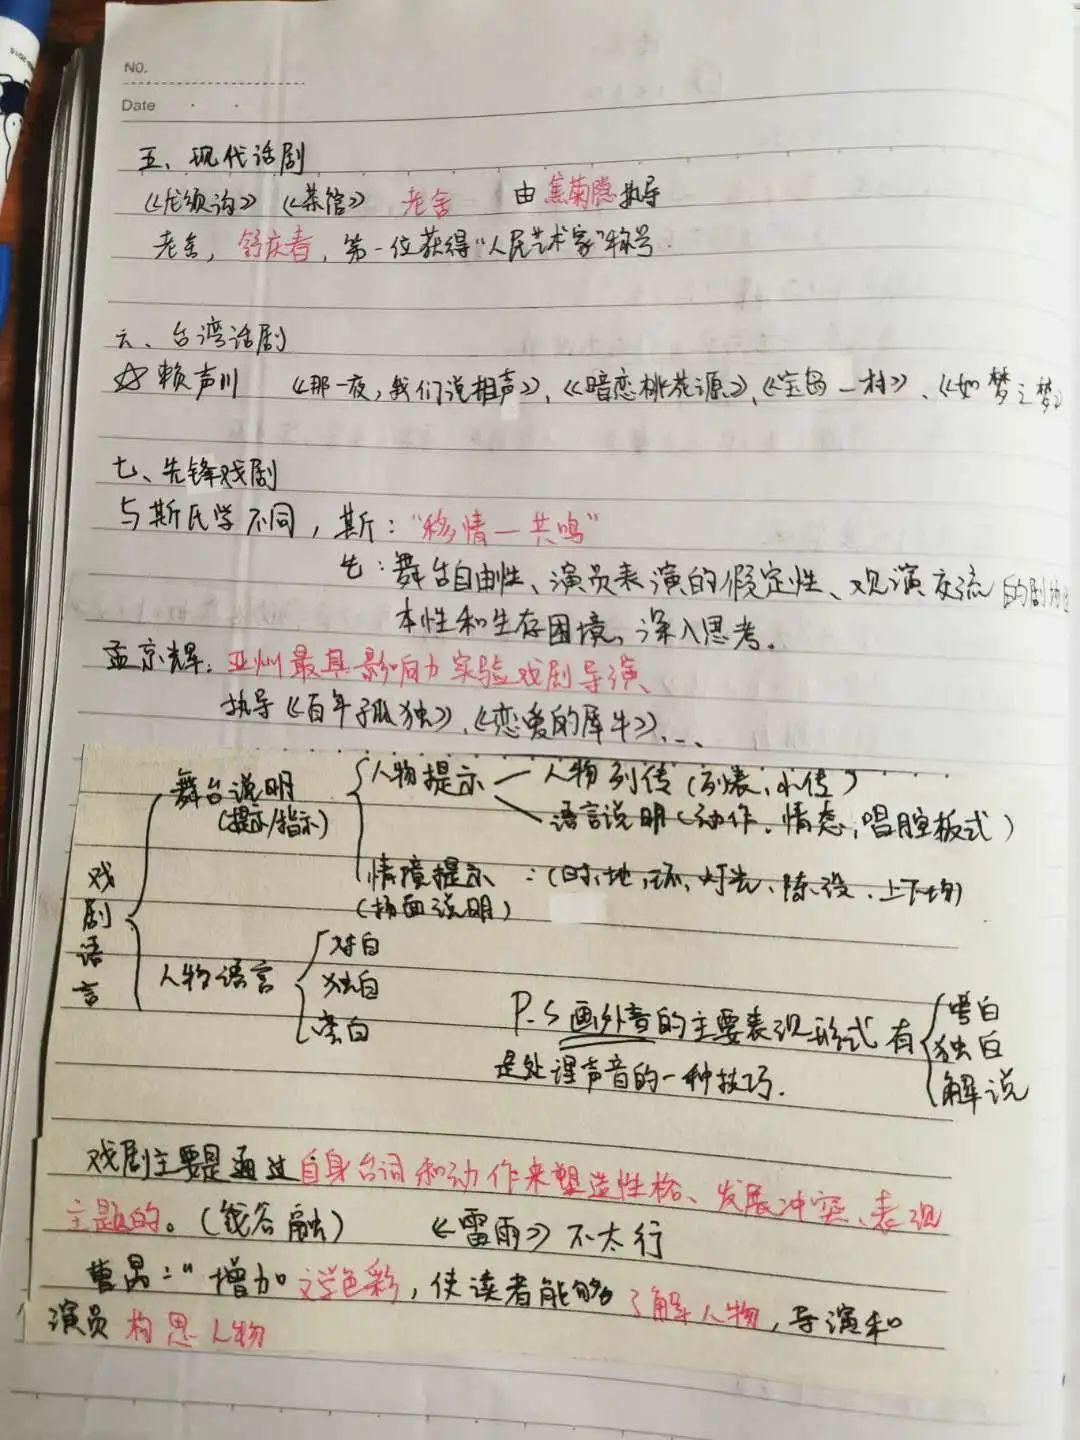 NO.
Date
五、现代话剧
《龙须沟》《茶馆》 老舍 由焦菊隐执导
老舍，舒庆春，第一位获得“人民艺术家”称号.
六、台湾话剧
☆赖声川 《那一夜，我们说相声》、《暗恋桃花源》、《宝岛一村》、《如梦之梦》
七、先锋戏剧
与斯氏学不同，斯：“移情—共鸣”
先：舞台自由性、演员表演的假定性、观演交流的剧场
本性和生存困境，深入思考。
孟京辉：亚州最具影响力实验戏剧导演、
执导《百年孤独》、《恋爱的犀牛》、...
戏剧语言
舞台说明
(提示/指示)
人物提示 — 人物列传（列表、小传）
语言说明（动作、情态、唱腔板式）
情境提示：(时、地、环、灯光、陈设、上下场)
(场面说明)
人物语言
对白
独白
旁白
P.S 画外音的主要表现形式有
旁白
独白
解说
是处理声音的一种技巧.
戏剧主要是通过自身台词和动作来塑造性格、发展冲突、表现
主题的。（钱谷融） 《雷雨》不太行
曹禺：“增加文学色彩，使读者能够了解人物，导演和
演员构思人物